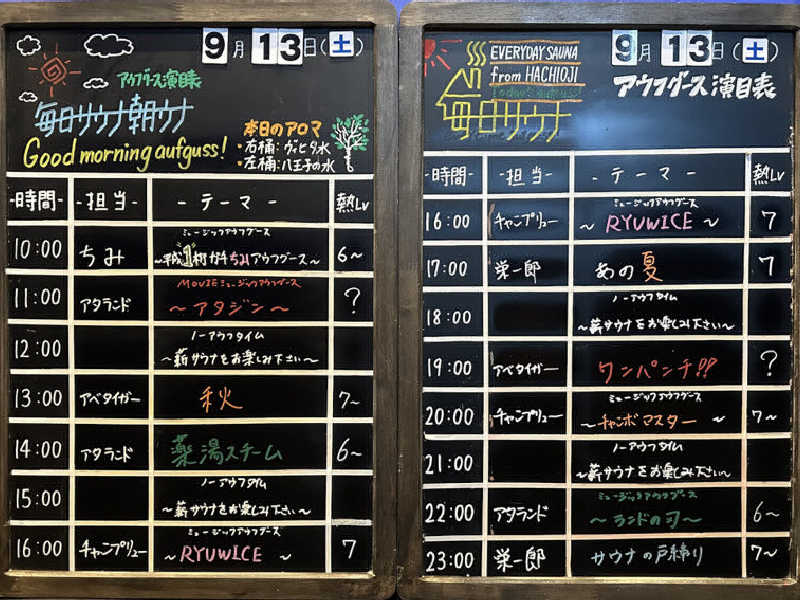 9月13日(土)
アウフグース演目表
毎日サウナ朝ウナ
Good morning aufguss!
本日のアロマ
・右桶:ヴィヒタ水
・左桶:八王子の水
-時間- -担当- -テーマ- 熱Lv
10:00 ちみ ミュージックアウフグース 6~
11:00 アタランド MOVIEミュージックアウフグース ~アタジン~ ?
12:00 ノーアウフタイム
~薪サウナをお楽しみ下さい~
13:00 アベタイガー 秋 7~
14:00 アタランド 薬湯スチーム 6~
15:00 ノーアウフタイム
~薪サウナをお楽しみ下さい~
16:00 チャンプリュー ミュージックアウフグース
~RYUWICE~ 7
9月13日(土)
EVERYDAY SAUNA
from HACHIOJI
毎日サウナ
アウフグース演目表
-時間- -担当- -テーマ- 熱Lv
16:00 チャンプリュー ミュージックアウフグース
~RYUWICE~ 7
17:00 栄一郎 あの夏 7
18:00 ノーアウフタイム
~薪サウナをお楽しみ下さい~
19:00 アベタイガー ワンパンチ!! ?
20:00 チャンプリュー ミュージックアウフグース
~チャンボマスター~ 7~
21:00 ノーアウフタイム
~薪サウナをお楽しみ下さい~
22:00 アタランド ミュージックアウフグース
~ランドの刃~ 6~
23:00 栄一郎 サウナの戸締り 7~